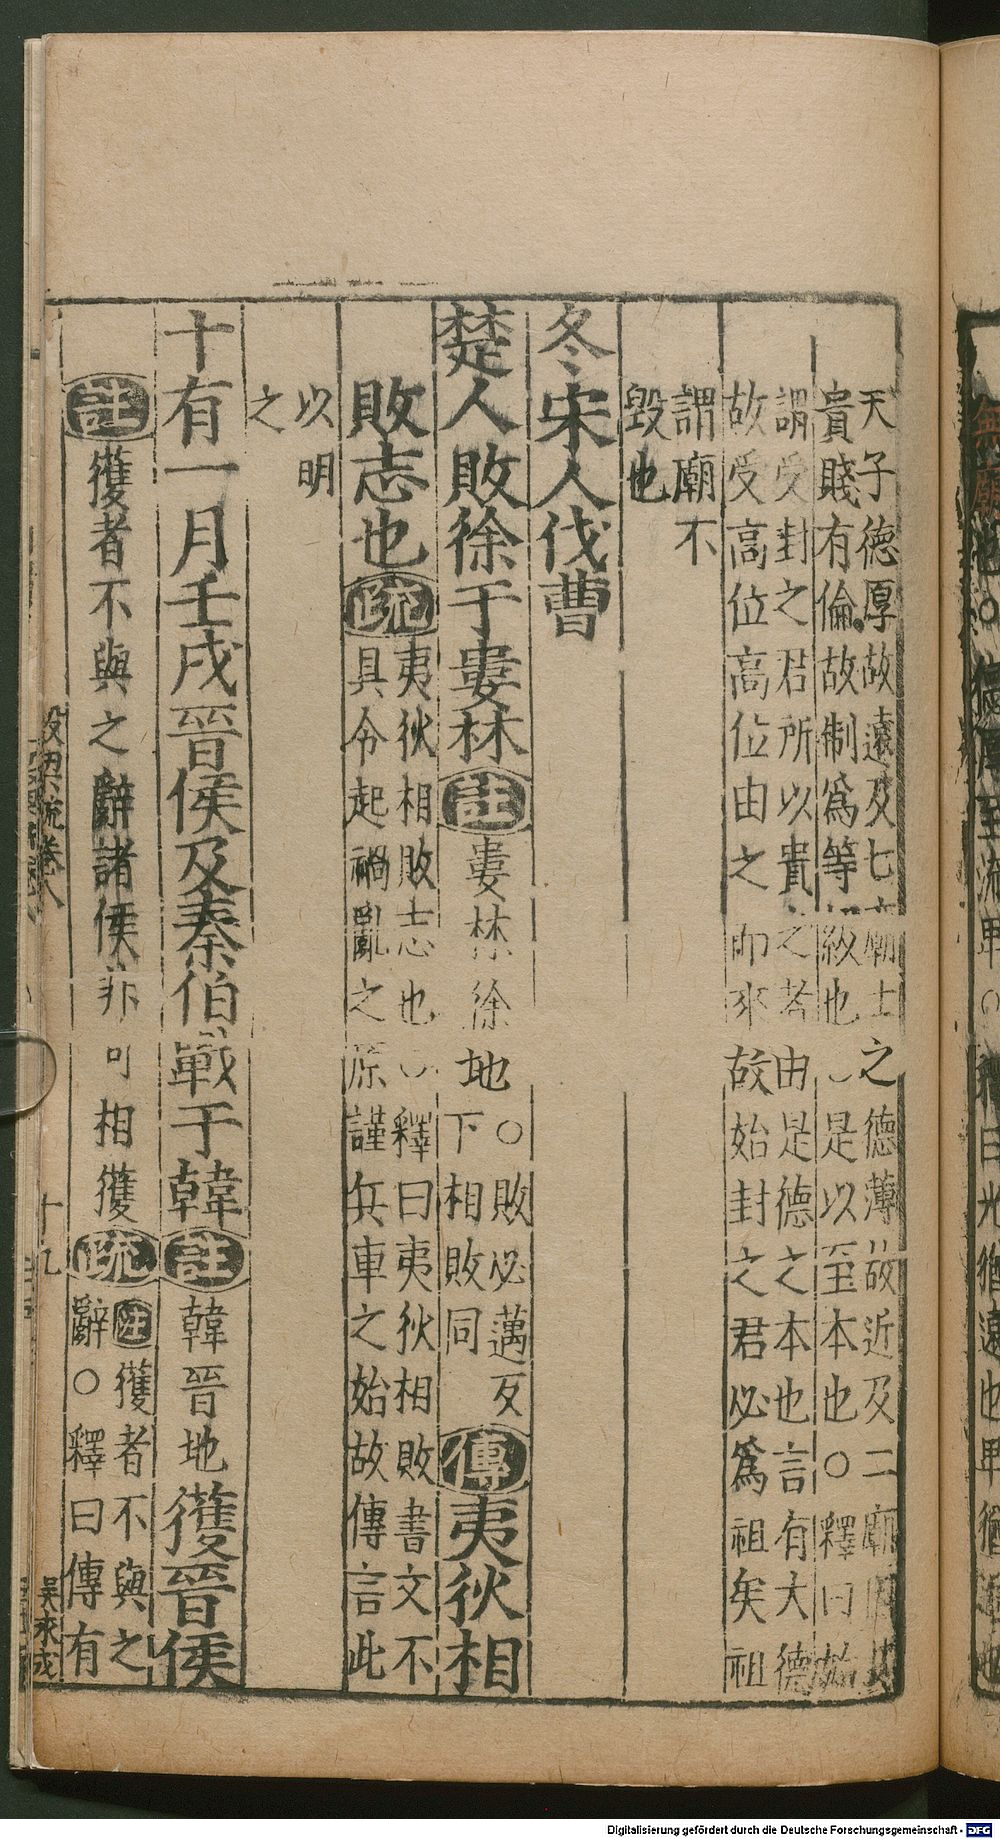 天子德厚故遠及七廟士之德薄故近及二廟因其
貴賤有倫故制爲等級也○是以至本也○釋曰始
謂受封之君所以貴之者由是德之本也言有大德
故受高位高位由之而來故始封之君必爲祖矣祖
謂廟不
毀也
冬宋人伐曹
楚人敗徐于婁林註婁林徐地○敗必邁反下相敗同傳夷狄相
敗志也疏夷狄相敗志也○釋曰夷狄相敗書文不
具令起禍亂之原謹兵車之始故傳言此
以明
之
十有一月壬戌晉侯及秦伯戰于韓註韓晉地獲晉侯
註獲者不與之辭諸侯非可相獲疏註獲者不與之
辭○釋曰傳有
梁疏卷八
十九
吳來成
Digitalisierung gefördert durch die Deutsche Forschungsgemeinschaft - DFG